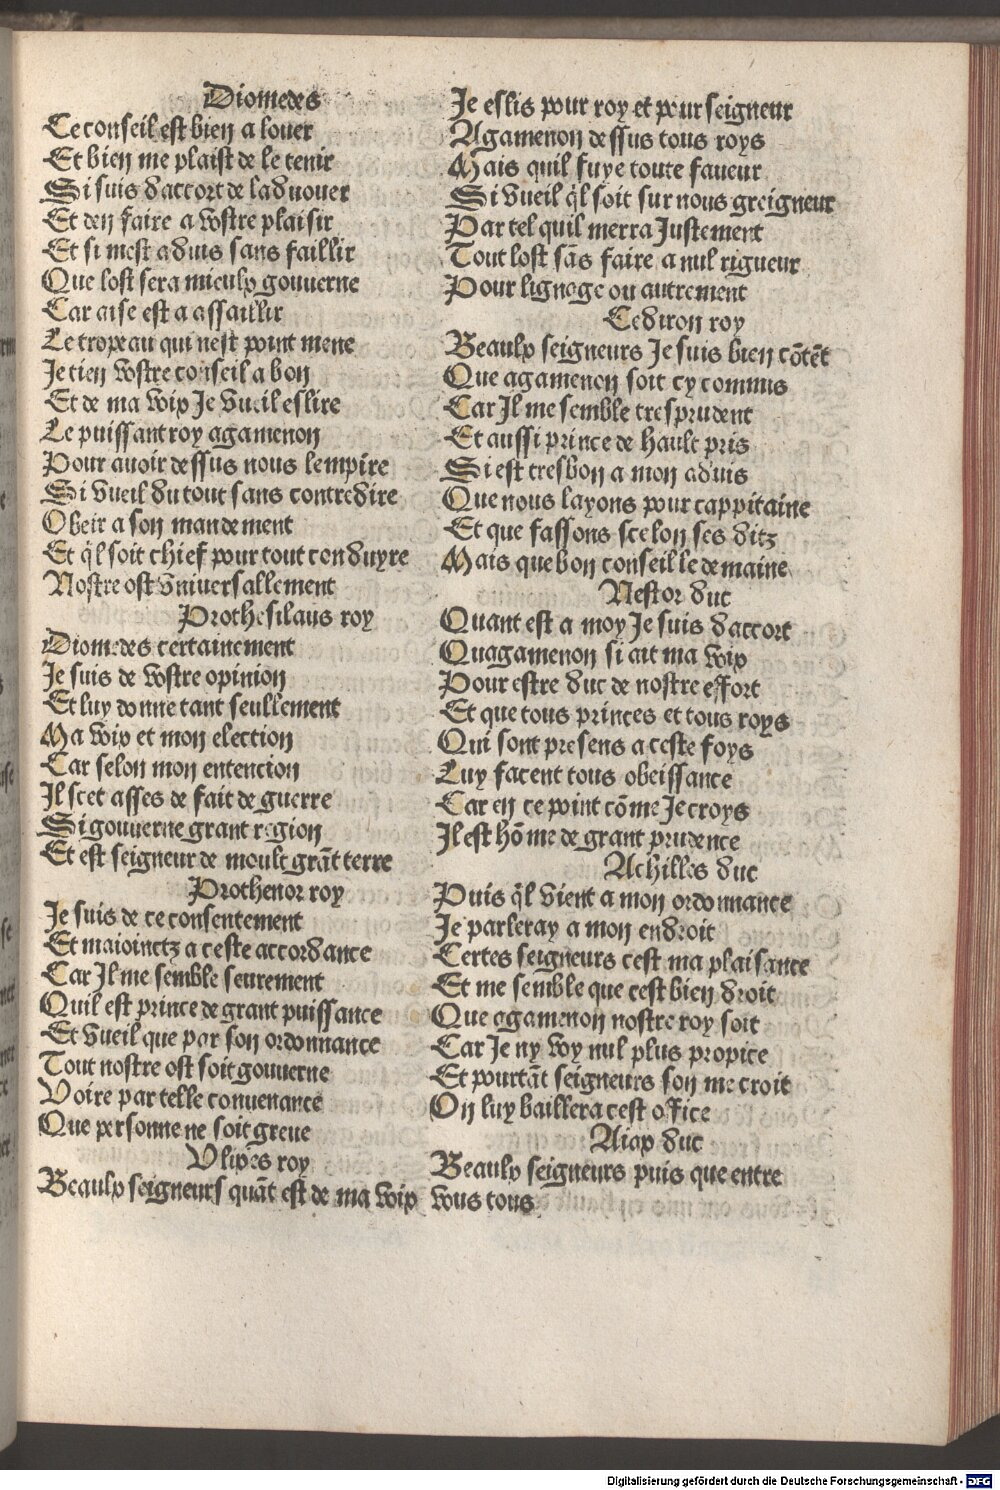 Diomedes
Ce conseil est bien a louer
Et bien me plaist de le tenir
Si suis daccort de laduouer
Et den faire a vostre plaisir
Et si mest aduis sans faillir
Que lost sera mieulx gouuerne
Car aise est a assaillir
Le tropeau qui nest point mene
Je tien vostre conseil a bon
Et de ma voix Je vueil eslire
Le puissant roy agamenon
Pour auoir dessus nous lempire
Si vueil du tout sans contredire
Obeir a son mandement
Et ql̄ soit chief pour tout conduyre
Nostre ost vniuersallement
Prothesilaus roy
Diomedes certainement
Je suis de vostre opinion
Et luy donne tant seullement
Ma voix et mon election
Car selon mon entencion
Il scet asses de fait de guerre
Si gouuerne grant region
Et est seigneur de moult grāt terre
Prothenor roy
Je suis de ce consentement
Et maioinctz a ceste accordance
Car Il me semble seurement
Quil est prince de grant puissance
Et vueil que par son ordonnance
Tout nostre ost soit gouuerne
Voire par telle conuenance
Que personne ne soit greue
Vlixes roy
Beaulx seigneurs quāt est de ma voix
Je eslis pour roy et pour seigneur
Agamenon dessus tous roys
Mais quil fuye toute faueur
Si vueil ql̄ soit sur nous greigneur
Par tel quil merra Justement
Tout lost sās faire a nul rigueur
Pour lignage ou autrement
Cediron roy
Beaulx seigneurs Je suis bien cōtēt
Que agamenon soit cy commis
Car Il me semble tresprudent
Et aussi prince de hault pris
Si est tresbon a mon aduis
Que nous layons pour cappitaine
Et que fassons scelon ses ditz
Mais que bon conseil le demaine
Nestor duc
Quant est a moy Je suis daccort
Quagamenon si ait ma voix
Pour estre duc de nostre effort
Et que tous princes et tous roys
Qui sont presens a ceste foys
Luy facent tous obeissance
Car en ce point cōme Je croys
Il est hōme de grant prudence
Achilles duc
Puis ql̄ vient a mon ordonnance
Je parleray a mon endroit
Certes seigneurs cest ma plaisance
Et me semble que cest bien droit
Que agamenon nostre roy soit
Car Je ny voy nul plus propice
Et pourtāt seigneurs son me croit
On luy baillera cest office
Aiax duc
Beaulx seigneurs puis que entre
vous tous
Digitalisierung gefördert durch die Deutsche Forschungsgemeinschaft - DFG